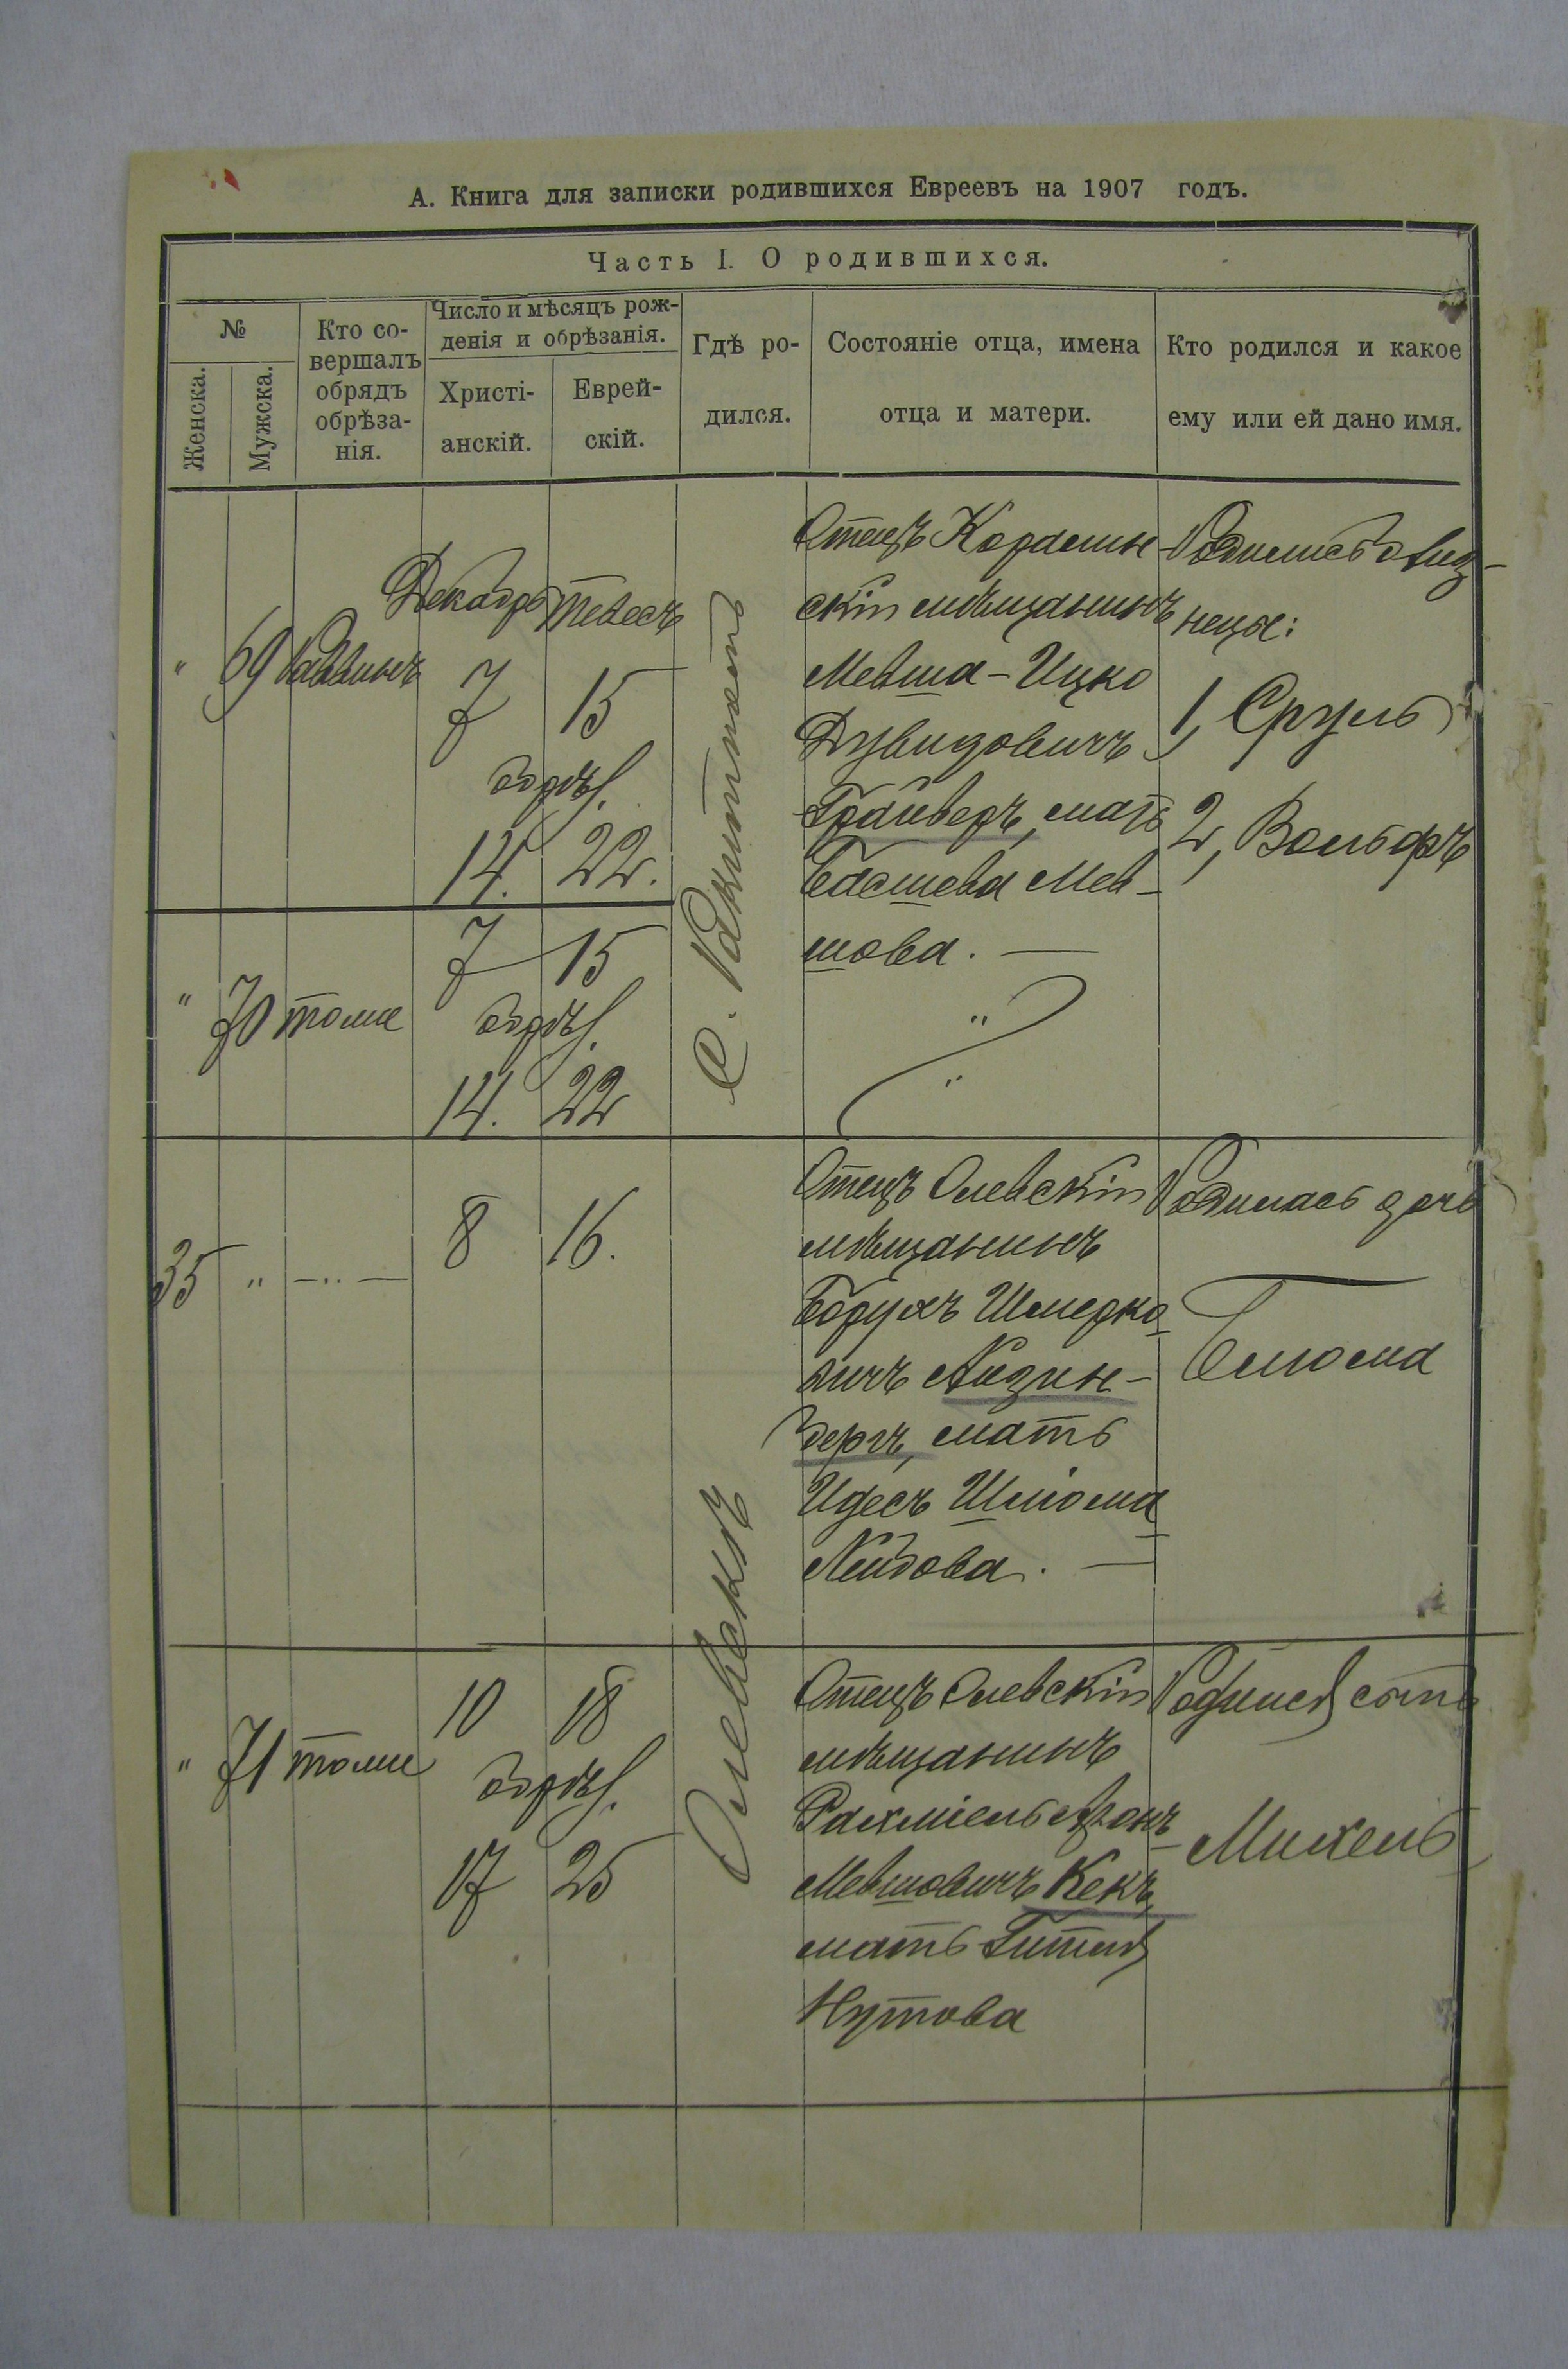 А. Книга для записки родившихся Евреевъ на 1907 годъ.
Часть I. О родившихся.
№
Женска.
Мужска.
Кто со-
вершалъ
обрядъ
обрѣза-
нія.
Число и мѣсяцъ рож-
денія и обрѣзанія.
Христі-
анскій.
Еврей-
скій.
Гдѣ ро-
дился.
Состояніе отца, имена
отца и матери.
Кто родился и какое
ему или ей дано имя.
" 69 Раввинъ
Декабрь Тевесъ
7 15
обрѣз.
14. 22.
С.
Отецъ
скій мѣщанинъ
Мевша-Ицко
Дувидовичъ
Грайверъ, мать
Басшева Мев-
шова. —
Родились близ-
нецы:
1, Сруль
2, Вольфъ
" 70 тоже
7 15
обрѣз.
14. 22
"
"
35 " —..—
8 16.
Олевскъ
Отецъ Олевскій
мѣщанинъ
Борухъ Шмерко-
вичъ Айзин-
бергъ, мать
Идесъ Шліома
Лейбова. —
Родилась дочь
Блюма
" 71 тоже
10 18
обрѣз.
17 25
Отецъ Олевскій
мѣщанинъ
Рахміель Аронъ
Мевшовичъ Кекъ,
мать Гитля
Нутова
Родился сынъ
Михель